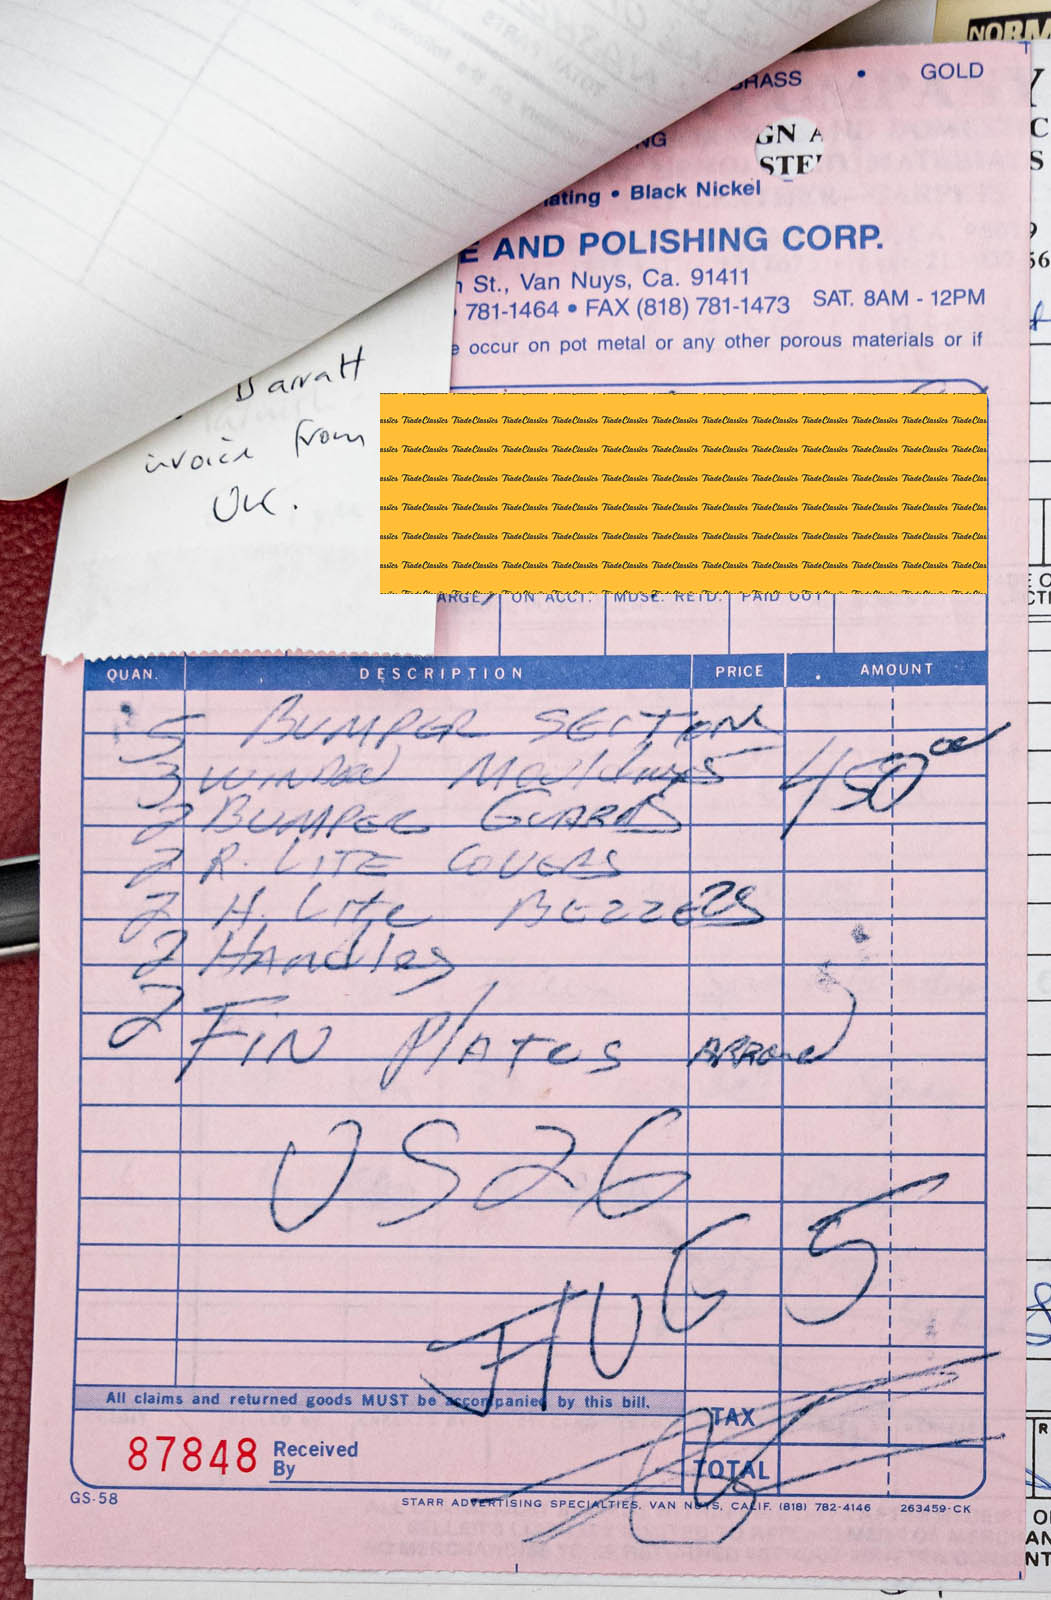 NORM
BRASS • GOLD
NG
GN A
STE
ating • Black Nickel
E AND POLISHING CORP.
St., Van Nuys, Ca. 91411
781-1464 • FAX (818) 781-1473 SAT. 8AM - 12PM
e occur on pot metal or any other porous materials or if
Barratt
invoice from
UK.
TradeClassics
ARGE ON ACCT. MDSE. RETD. PAID OUT
QUAN. DESCRIPTION PRICE AMOUNT
5 BUMPER SECTION
3 WINDOW Mouldings 450 00
2 BUMPER GUARDS
2 R. LITE COVERS
2 H. Lite BEZZELS
2 HAndles
2 FIN PlATES ARROW
US26
HUGS
All claims and returned goods MUST be accompanied by this bill.
TAX
87848 Received By
TOTAL
GS-58
STARR ADVERTISING SPECIALTIES, VAN NUYS, CALIF. (818) 782-4146 263459-CK